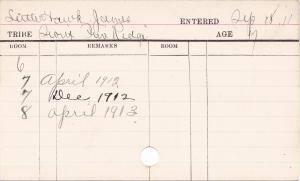 Little Hawk, James ENTERED Sep 18, 11
TRIBE Sioux Pine Ridge AGE 17
ROOM REMARKS ROOM
6
7 April 1912
7 Dec 1912
8 April 1913